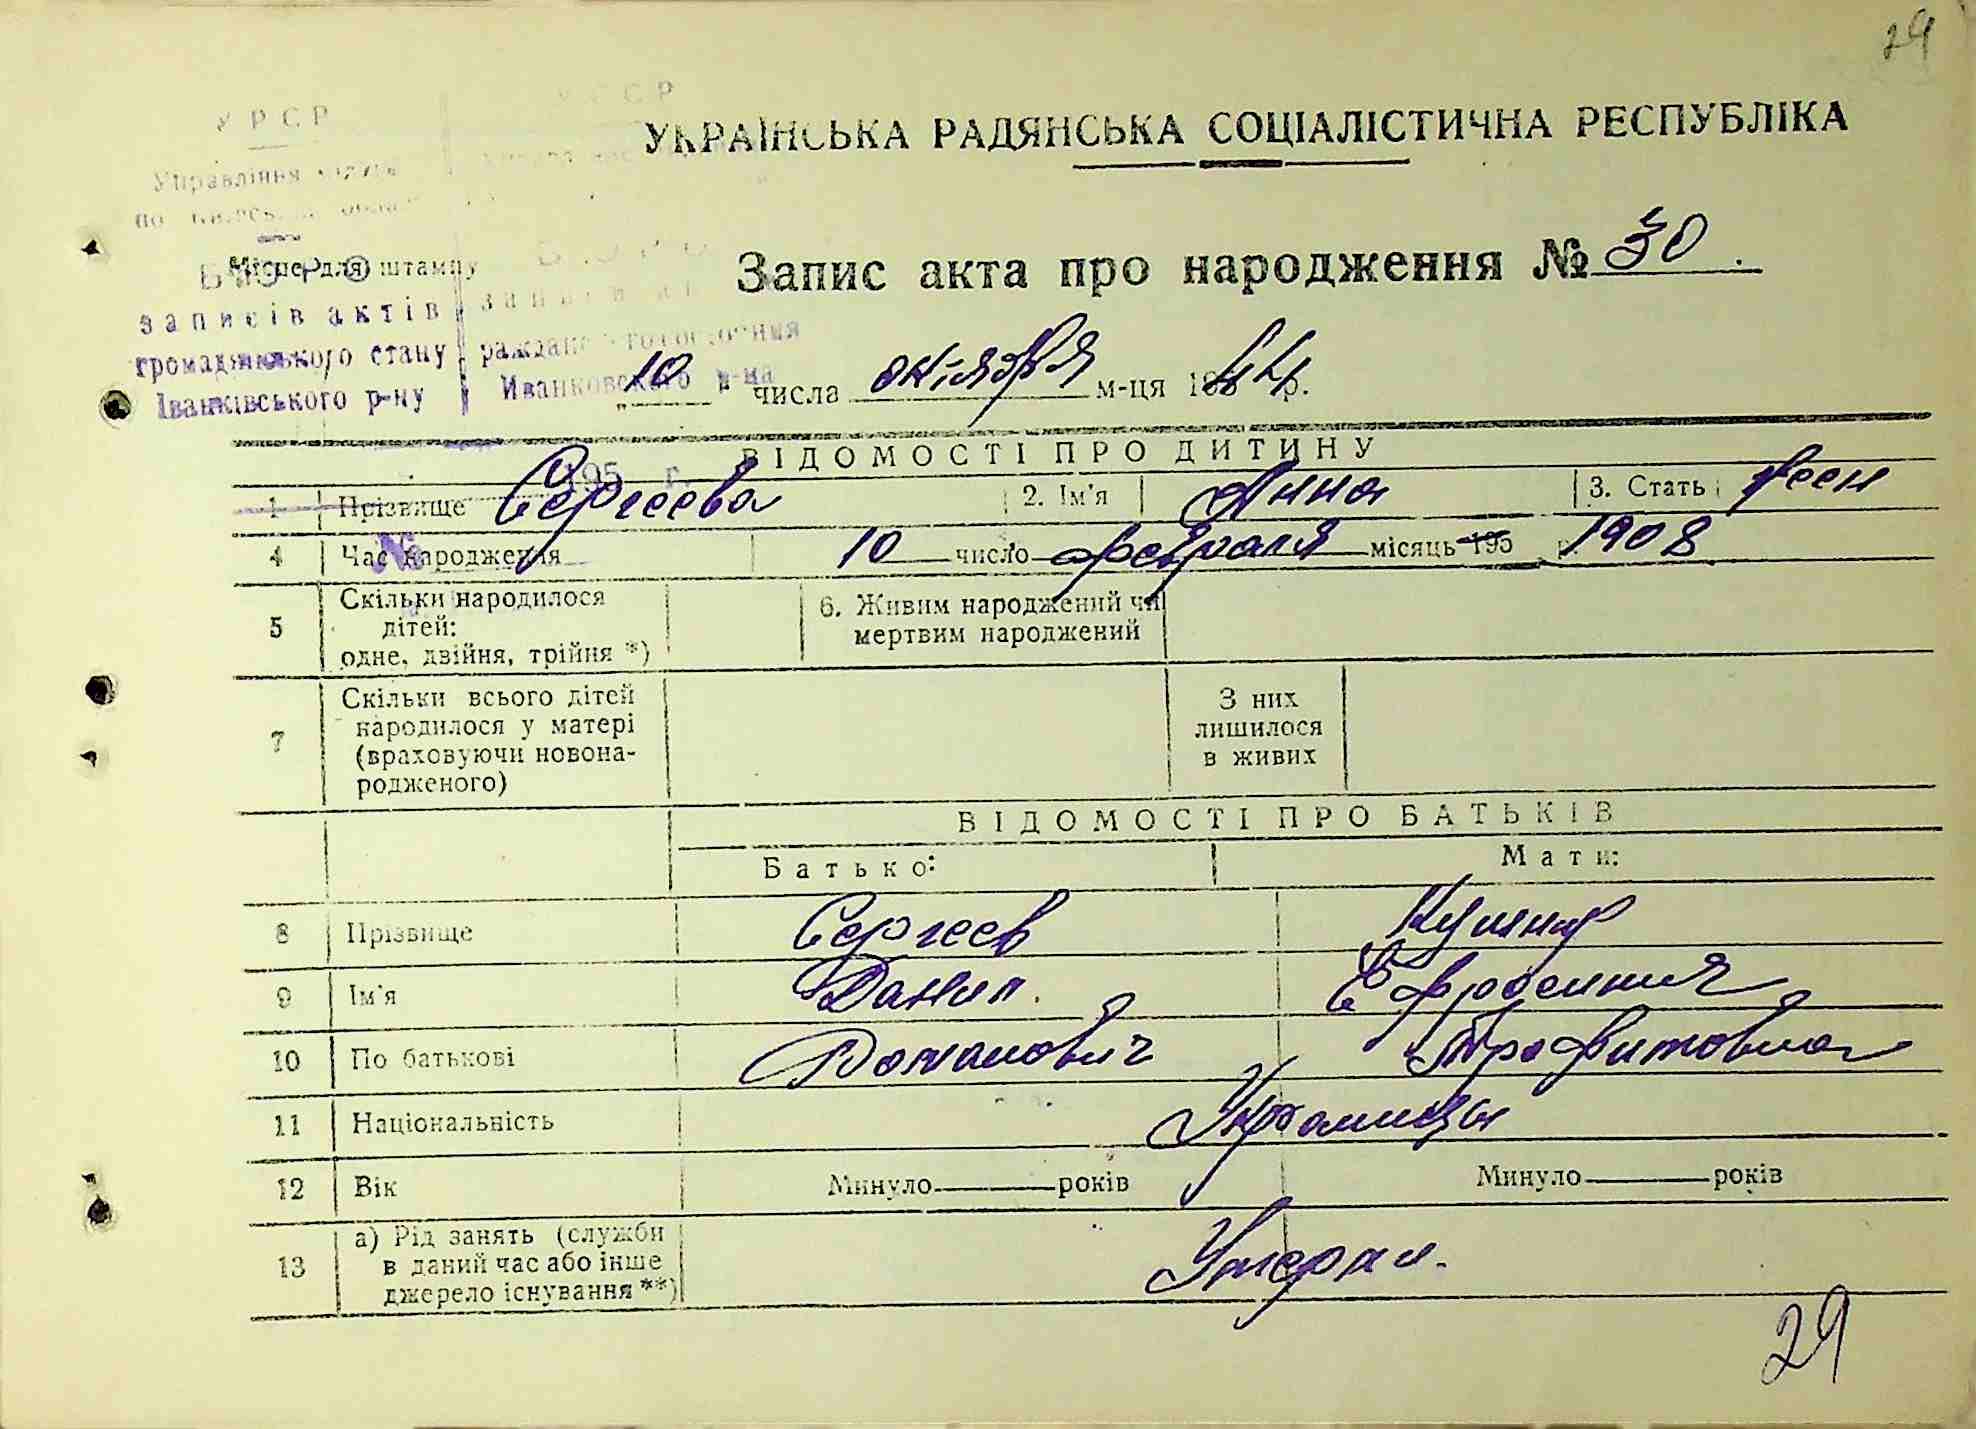 29
УКРАЇНСЬКА РАДЯНСЬКА СОЦІАЛІСТИЧНА РЕСПУБЛІКА
УРСР
Управління
по
Місце для штампу
БЮРО
записів актів
громадянського стану
Іванківського р-ну
Иванковского р-на
Запис акта про народження № 30.
"10" числа октября м-ця 19 р.
195 г.
№
ВІДОМОСТІ ПРО ДИТИНУ
1 Прізвище Сергеева 2. Ім'я Анна 3. Стать жен
4 Час народження 10 число февраля місяць 195 р. 1908
5 Скільки народилося дітей: одне, двійня, трійня *) 6. Живим народжений чи мертвим народжений
7 Скільки всього дітей народилося у матері (враховуючи новонародженого) З них лишилося в живих
ВІДОМОСТІ ПРО БАТЬКІВ
Батько: Мати:
8 Прізвище Сергеев Кушнир
9 Ім'я Данил Ефросиния
10 По батькові Трофимовна
11 Національність Украинцы
12 Вік Минуло років Минуло років
13 а) Рід занять (служби в даний час або інше джерело існування **) Умерли.
29